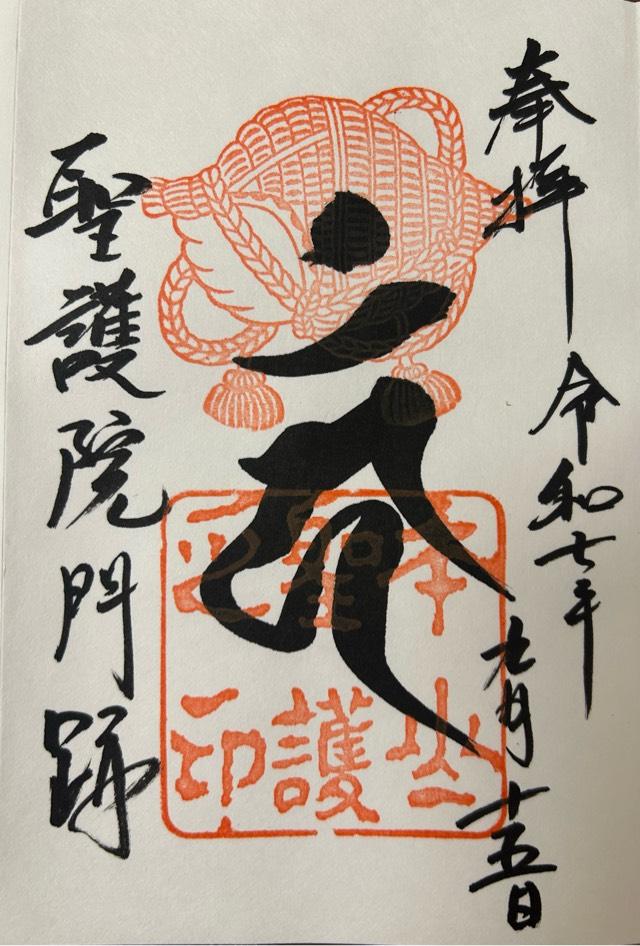 奉拝
令和七年
九月十五日
本山
聖護
之印
聖護院門跡